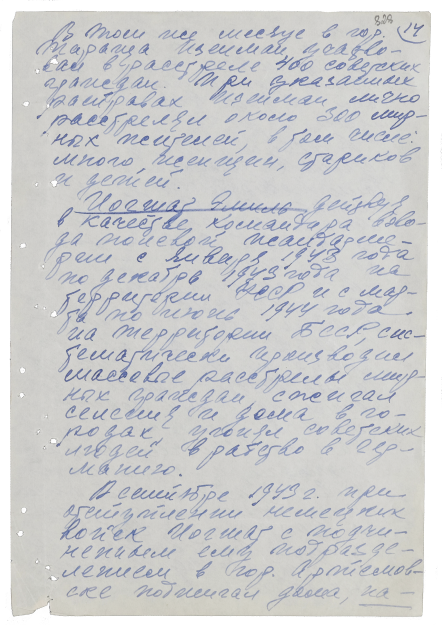 828
14
В том же месяце в гор.
Тараща Изенман участво-
вал в расстреле 400 советских
граждан. При указанных
расправах Изенман лично
расстрелял около 300 мир-
ных жителей, в том числе
много женщин, стариков
и детей.
Иогшат Эмиль, действуя
в качестве командира взво-
да полевой жандарме-
рии с января 1943 года
по декабрь 1943 года на
территории УССР и с мар-
та по июнь 1944 года
на территории БССР, сис-
тематически производил
массовые расстрелы мир-
ных граждан, сжигал
селения и дома в го-
родах, угонял советских
людей в рабство в Гер-
манию.
В сентябре 1943 г. при
отступлении немецких
войск Иогшат с подчи-
ненным ему подразде-
лением в гор. Артемов-
ске поджигал дома, на-